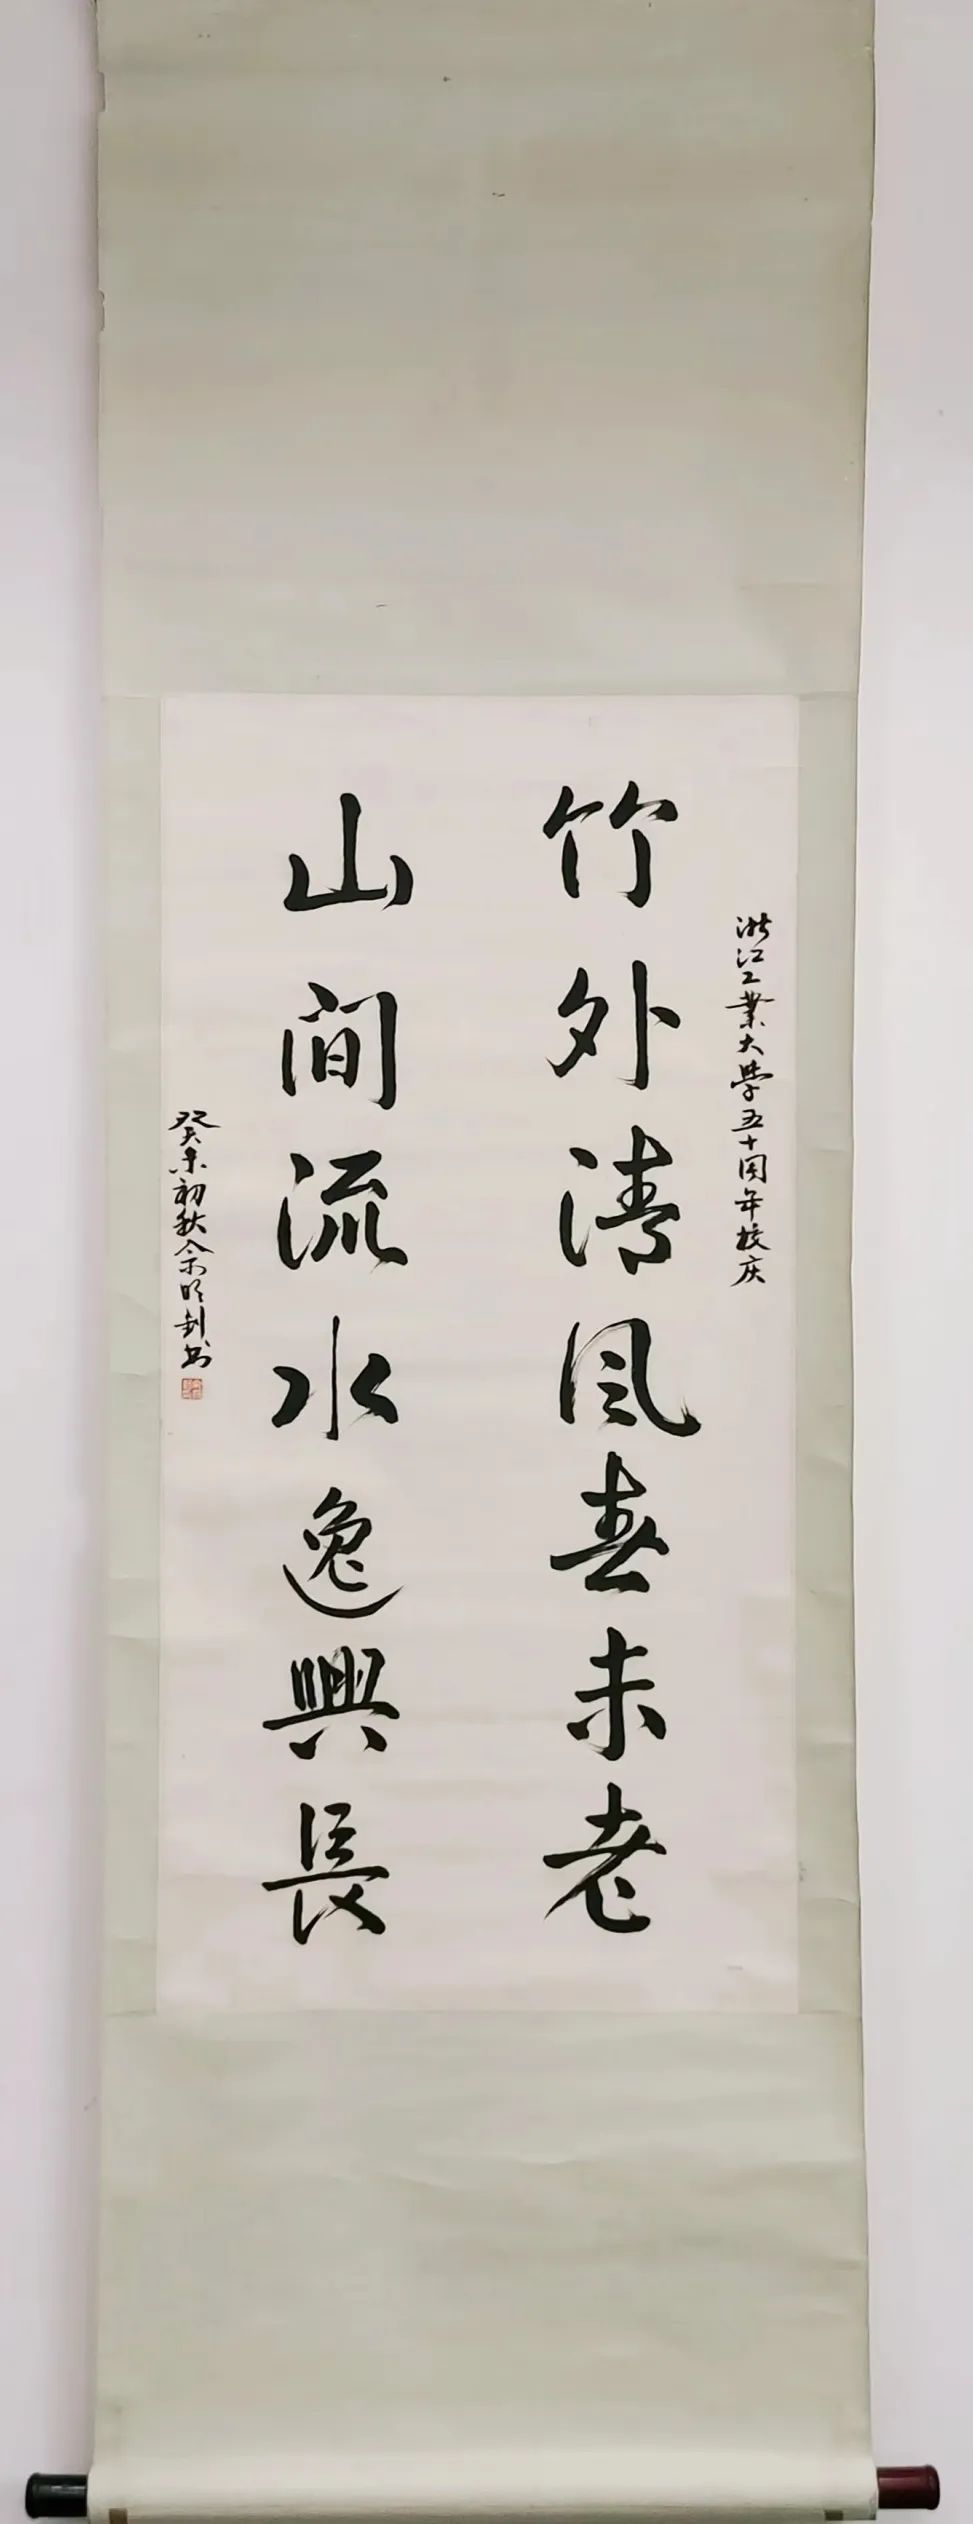 浙江工業大學五十周年校庆
竹外清风春未老
山间流水逸興長
癸未初秋佘明剑书